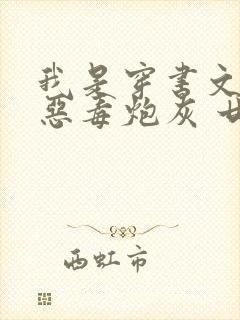 我是穿书文
恶毒炮灰 甘
西虹市